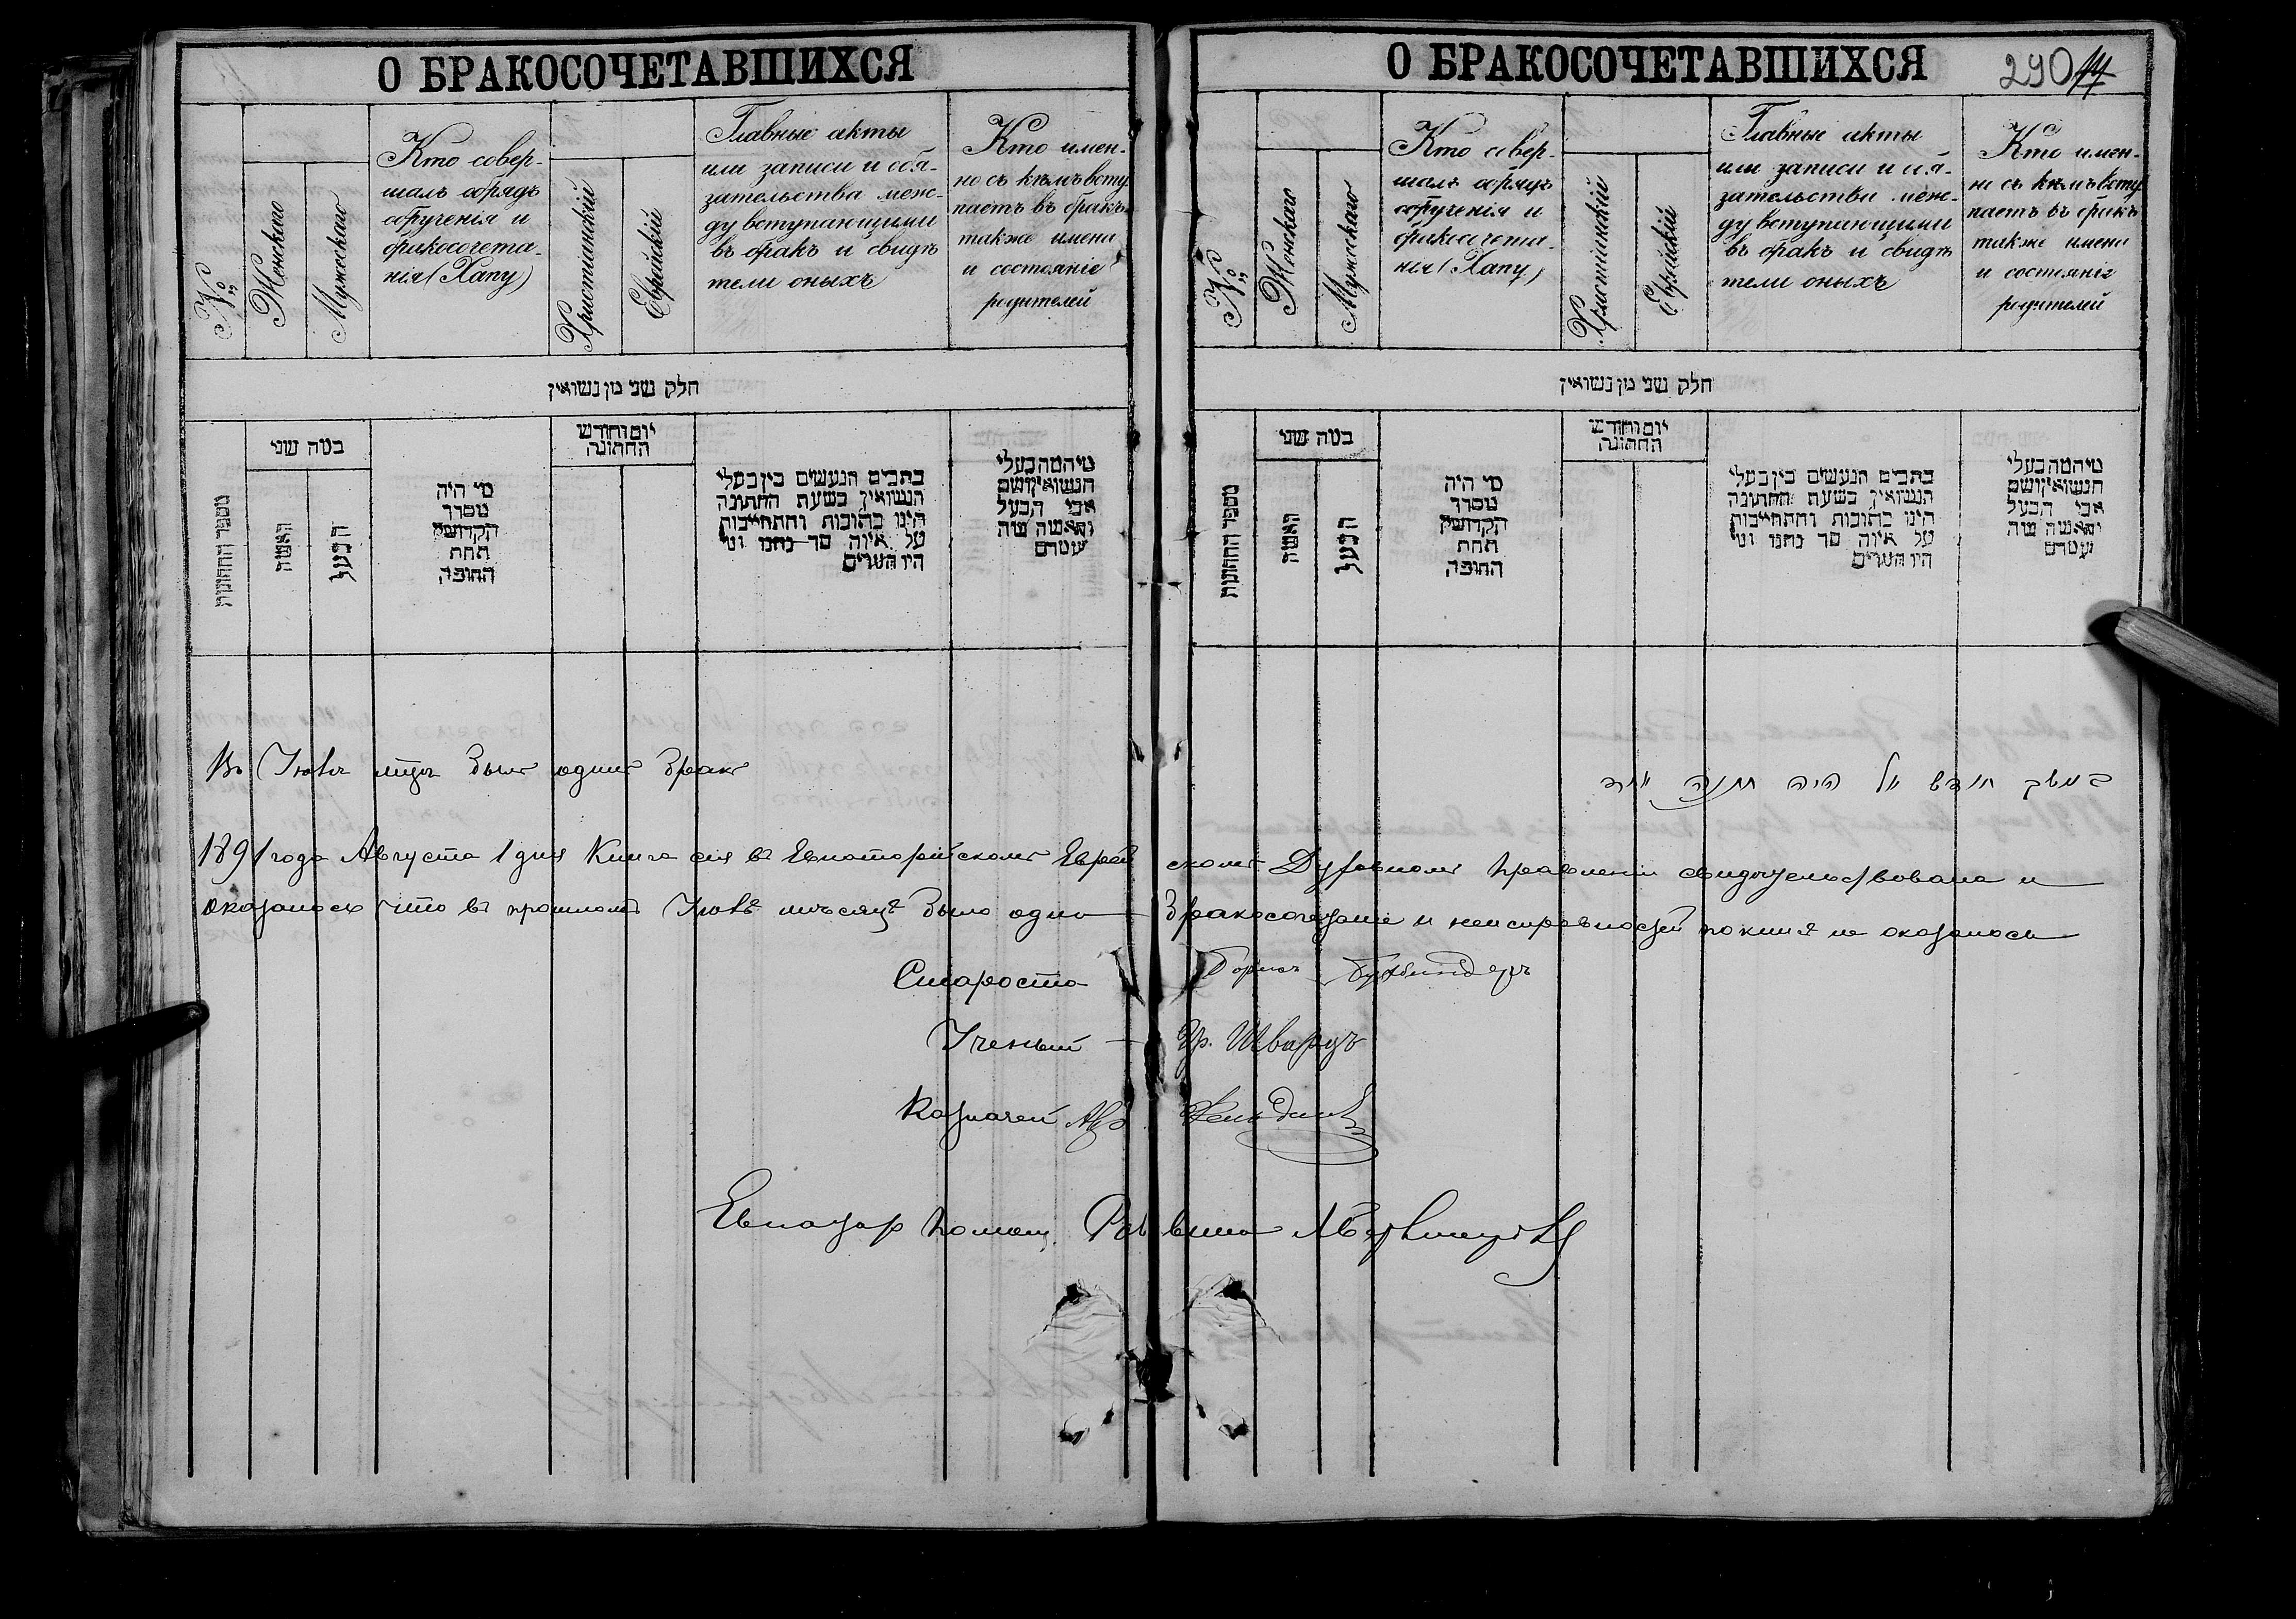 О БРАКОСОЧЕТАВШИХСЯ
№
Женскаго
Мужескаго
Кто совер-
шалъ обрядъ
обрученія и
бракосочета-
нія (Хапу)
Христіанскій
Еврейскій
Главные акты
или записи и обя-
зательства меж-
ду вступающими
въ бракъ и свидѣ
тели оныхъ
Кто имен-
но съ кѣмъ всту
паетъ въ бракъ
также имена
и состояніе
родителей
חלק שני מן נשואין
מספר החתונות
כמה שני
האשה
הבעל
מי היה
מסדר
הקדושין
תחת
החופה
יום וחודש
החתונה
כתבים הנעשים בין בעלי
הנשואין בשעת החתונה
היינו כתובות והתחייבות
על איזה סך נתנו ומי
היו העדים
מי המה בעלי
הנשואין ושם
אבי הבעל
והאשה מה
שמם
Въ Іюлѣ мцѣ былъ одинъ бракъ
1891 года Августа 1 дня Книга сія въ Евпаторійскомъ Еврей
оказалось что въ прошломъ Іюлѣ мѣсяцѣ было одно
Староста
Ученый —
Казначей
Помощ. Рав
О БРАКОСОЧЕТАВШИХСЯ
290
№
Женскаго
Мужескаго
Кто совер-
шалъ обрядъ
обрученія и
бракосочета-
нія (Хапу)
Христіанскій
Еврейскій
Главные акты
или записи и обя-
зательства меж-
ду вступающими
въ бракъ и свидѣ
тели оныхъ
Кто имен-
но съ кѣмъ всту
паетъ въ бракъ
также имена
и состояніе
родителей
חלק שני מן נשואין
מספר החתונות
כמה שני
האשה
הבעל
מי היה
מסדר
הקדושין
תחת
החופה
יום וחודש
החתונה
כתבים הנעשים בין בעלי
הנשואין בשעת החתונה
היינו כתובות והתחייבות
על איזה סך נתנו ומי
היו העדים
מי המה בעלי
הנשואין ושם
אבי הבעל
והאשה מה
שמם
במשך חודש יול היה חתונה
скомъ Духовномъ Правленіи свидѣтельствована и
бракосочетаніе и неисправностей по книгѣ не оказалось
Борисъ Бухбиндеръ
Гр. Шварцъ
вина